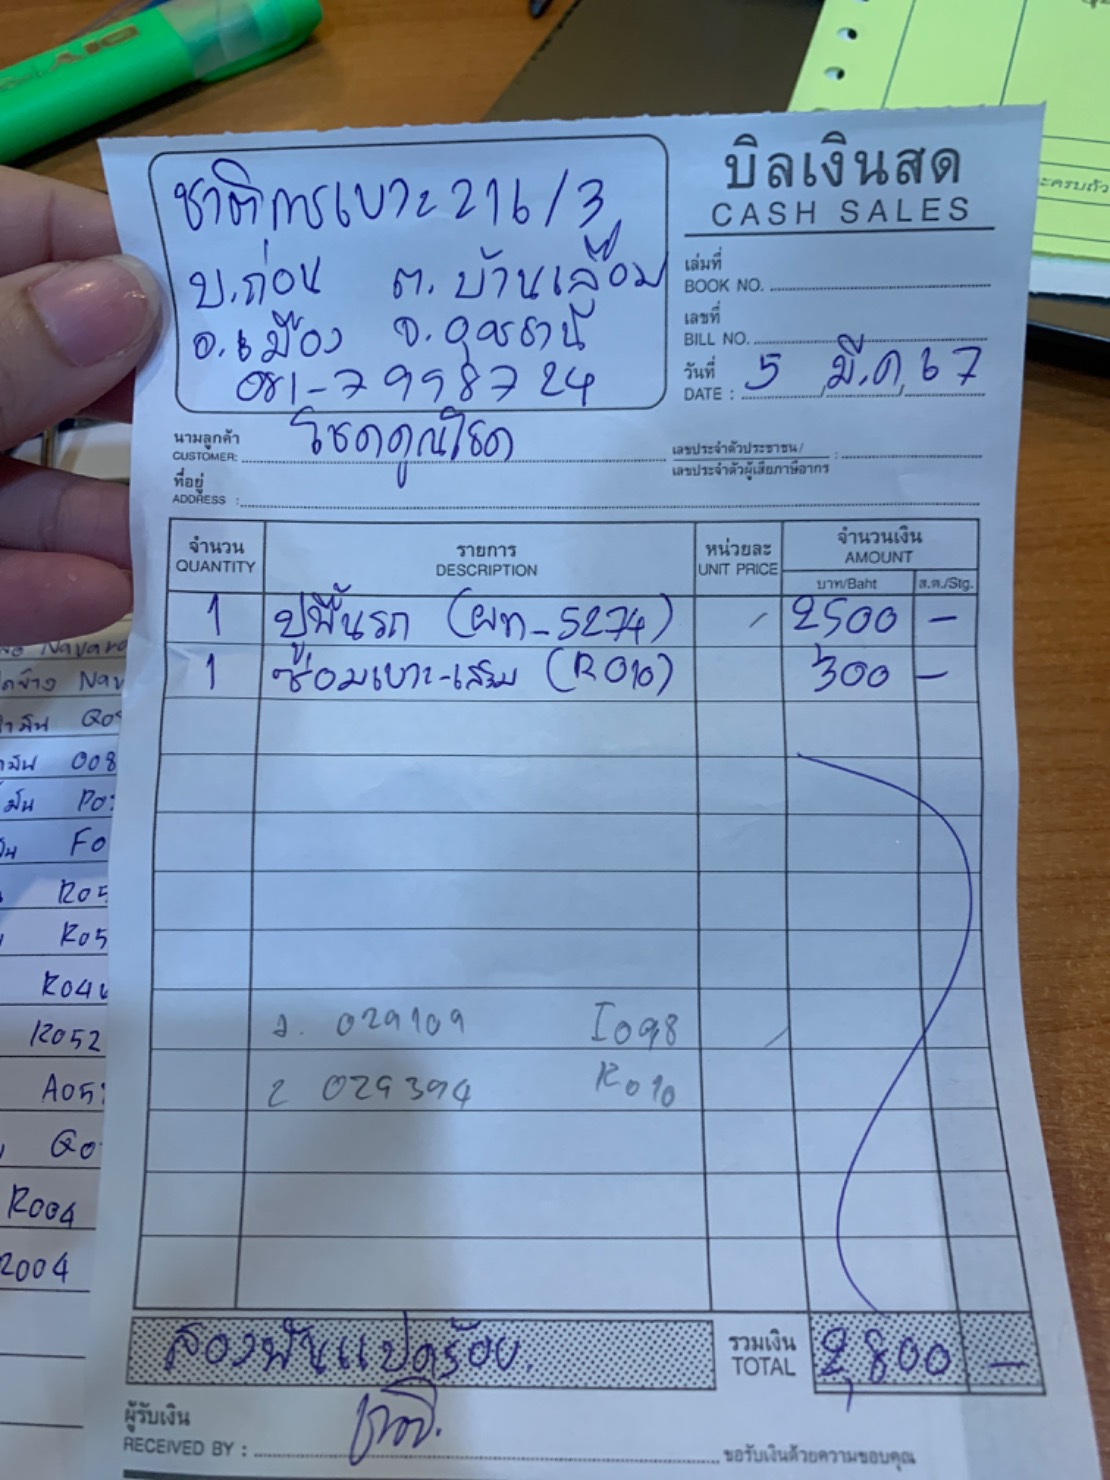 บิลเงินสด
CASH SALES
ชาติการเบาะ 216/3
บ.ก่อน ต.บ้านเลื่อม
อ.เมือง จ.อุดรธานี
081-7998724
เล่มที่
BOOK NO.
เลขที่
BILL NO.
วันที่
DATE : 5 มี.ค. 67
นามลูกค้า
CUSTOMER: โชคคูณโชค
เลขประจำตัวประชาชน/
เลขประจำตัวผู้เสียภาษีอากร :
ที่อยู่
ADDRESS :
จำนวน
QUANTITY
รายการ
DESCRIPTION
หน่วยละ
UNIT PRICE
จำนวนเงิน
AMOUNT
บาท/Baht
ส.ต./Stg.
1 ปูพื้นรถ (ผท-5274) 2500 -
1 ซ่อมเบาะ-เสริม (R010) 300 -
1. 029109 I098
2 029394 R010
สองพันแปดร้อย.
รวมเงิน
TOTAL
2,800 -
ผู้รับเงิน
RECEIVED BY :
ขอรับเงินด้วยความขอบคุณ
Nav
008
R052
R004
R004